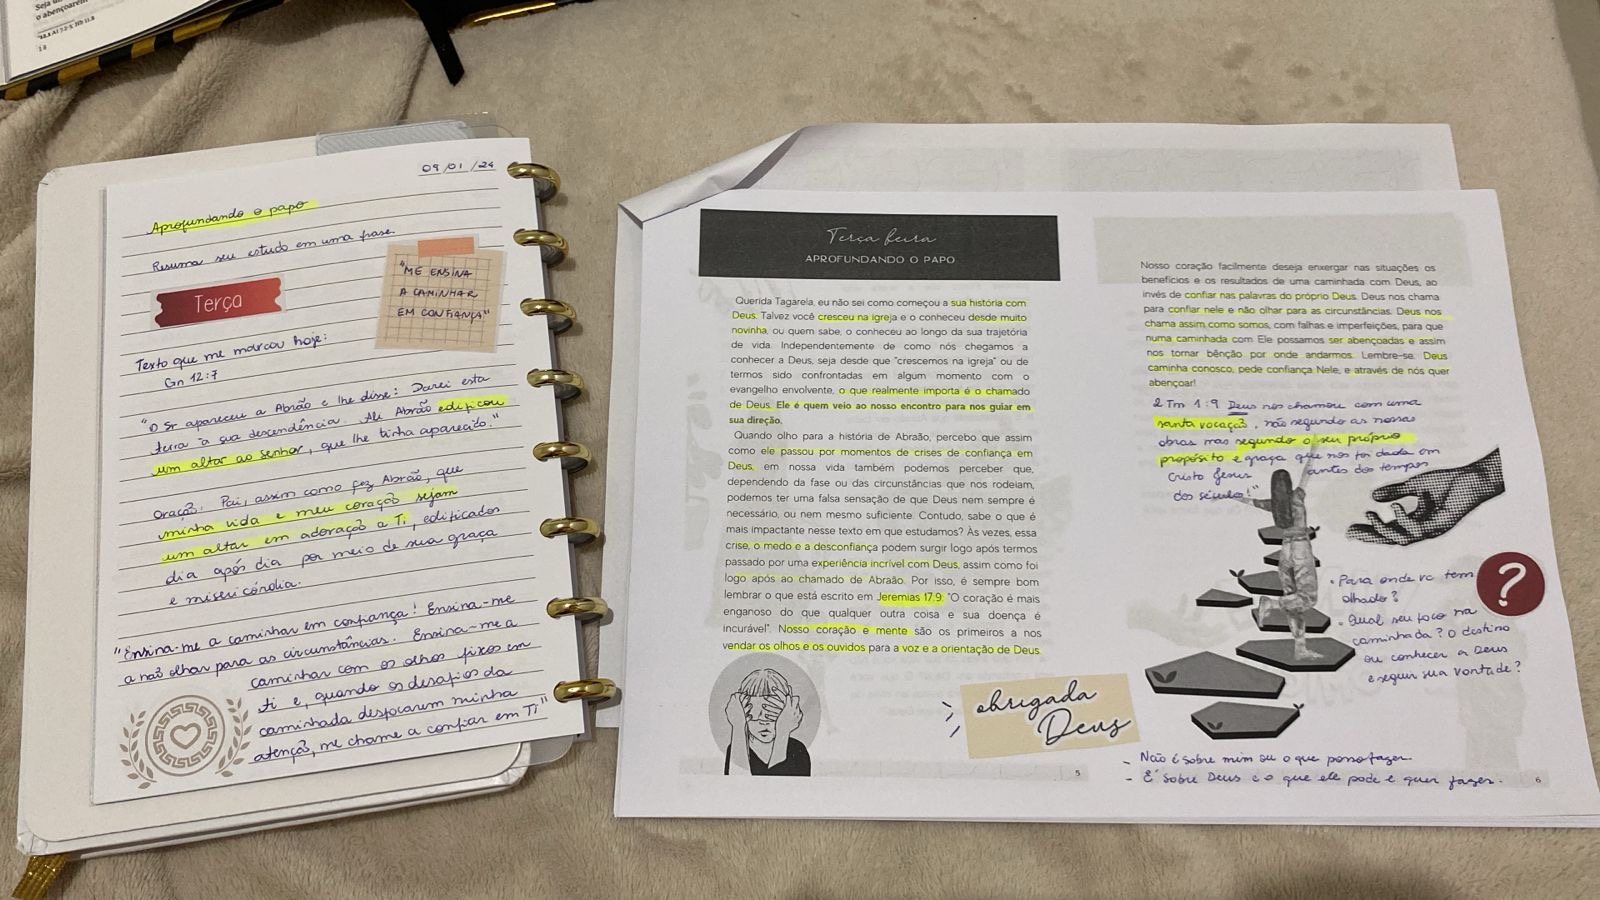 o abençoarem
18
09/01/24
Aprofundando o papo
Resuma seu estudo em uma frase.
Terça
"ME ENSINA
A CAMINHAR
EM CONFIANÇA"
Texto que me marcou hoje:
Gn 12:7
"O Sr apareceu a Abrão e lhe disse: Darei esta
terra a sua descendência. Ali Abrão edificou
um altar ao Senhor, que lhe tinha aparecido."
Oração: Pai, assim como fez Abrão, que
minha vida e meu coração sejam
um altar em adoração a Ti, edificados
dia após dia por meio de sua graça
e misericórdia.
"Ensina-me a caminhar em confiança! Ensina-me
a não olhar para as circunstâncias. Ensina-me a
caminhar com os olhos fixos em
ti e, quando os desafios da
caminhada desfocarem minha
atenção, me chame a confiar em Ti"
Terça feira
APROFUNDANDO O PAPO
Querida Tagarela, eu não sei como começou a sua história com
Deus. Talvez você cresceu na igreja e o conheceu desde muito
novinha, ou quem sabe, o conheceu ao longo da sua trajetória
de vida. Independentemente de como nós chegamos a
conhecer a Deus, seja desde que "crescemos na igreja" ou de
termos sido confrontadas em algum momento com o
evangelho envolvente, o que realmente importa é o chamado
de Deus. Ele é quem veio ao nosso encontro para nos guiar em
sua direção.
Quando olho para a história de Abraão, percebo que assim
como ele passou por momentos de crises de confiança em
Deus, em nossa vida também podemos perceber que,
dependendo da fase ou das circunstâncias que nos rodeiam,
podemos ter uma falsa sensação de que Deus nem sempre é
necessário, ou nem mesmo suficiente. Contudo, sabe o que é
mais impactante nesse texto em que estudamos? Às vezes, essa
crise, o medo e a desconfiança podem surgir logo após termos
passado por uma experiência incrível com Deus, assim como foi
logo após ao chamado de Abraão. Por isso, é sempre bom
lembrar o que está escrito em Jeremias 17:9: "O coração é mais
enganoso do que qualquer outra coisa e sua doença é
incurável". Nosso coração e mente são os primeiros a nos
vendar os olhos e os ouvidos para a voz e a orientação de Deus.
obrigada
Deus
5
Nosso coração facilmente deseja enxergar nas situações os
benefícios e os resultados de uma caminhada com Deus, ao
invés de confiar nas palavras do próprio Deus. Deus nos chama
para confiar nele e não olhar para as circunstâncias. Deus nos
chama assim como somos, com falhas e imperfeições, para que
numa caminhada com Ele possamos ser abençoadas e assim
nos tornar bênção por onde andarmos. Lembre-se. Deus
caminha conosco, pede confiança Nele, e através de nós quer
abençoar!
2 Tm 1:9 Deus nos chamou com uma
santa vocação, não segundo as nossas
obras mas segundo o seu próprio
propósito e graça que nos foi dada em
Cristo Jesus antes dos tempos
dos séculos!
?
• Para onde vc tem
olhado?
• Qual seu foco na
caminhada? O destino
ou conhecer a Deus
e seguir sua vontade?
- Não é sobre mim ou o que posso fazer.
- É sobre Deus e o que ele pode e quer fazer.
6